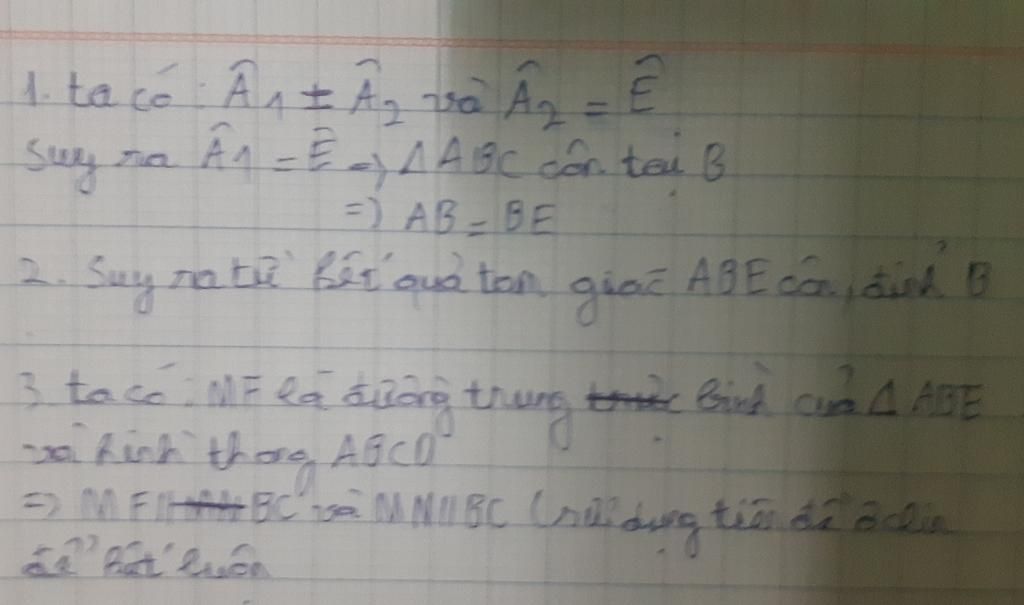 1. ta có : Â1 = Â2 và Â2 = Ê
Suy ra Â1 = Ê => ΔABC cân tại B
=> AB = BE
2. Suy ra từ kết quả tam giác ABE cân, đỉnh B
3. ta có : MF là đường trung bình của Δ ABE
và hình thang ABCD
=> MF // BC và MN // BC (sử dụng tiên đề ơclit
để kết luận